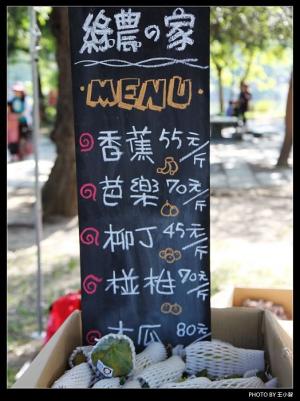 綠農の家
MENU
香蕉 55元/斤
芭樂 70元/斤
柳丁 45元/斤
椪柑 70元/斤
木瓜 80元
PHOTO BY 王小智